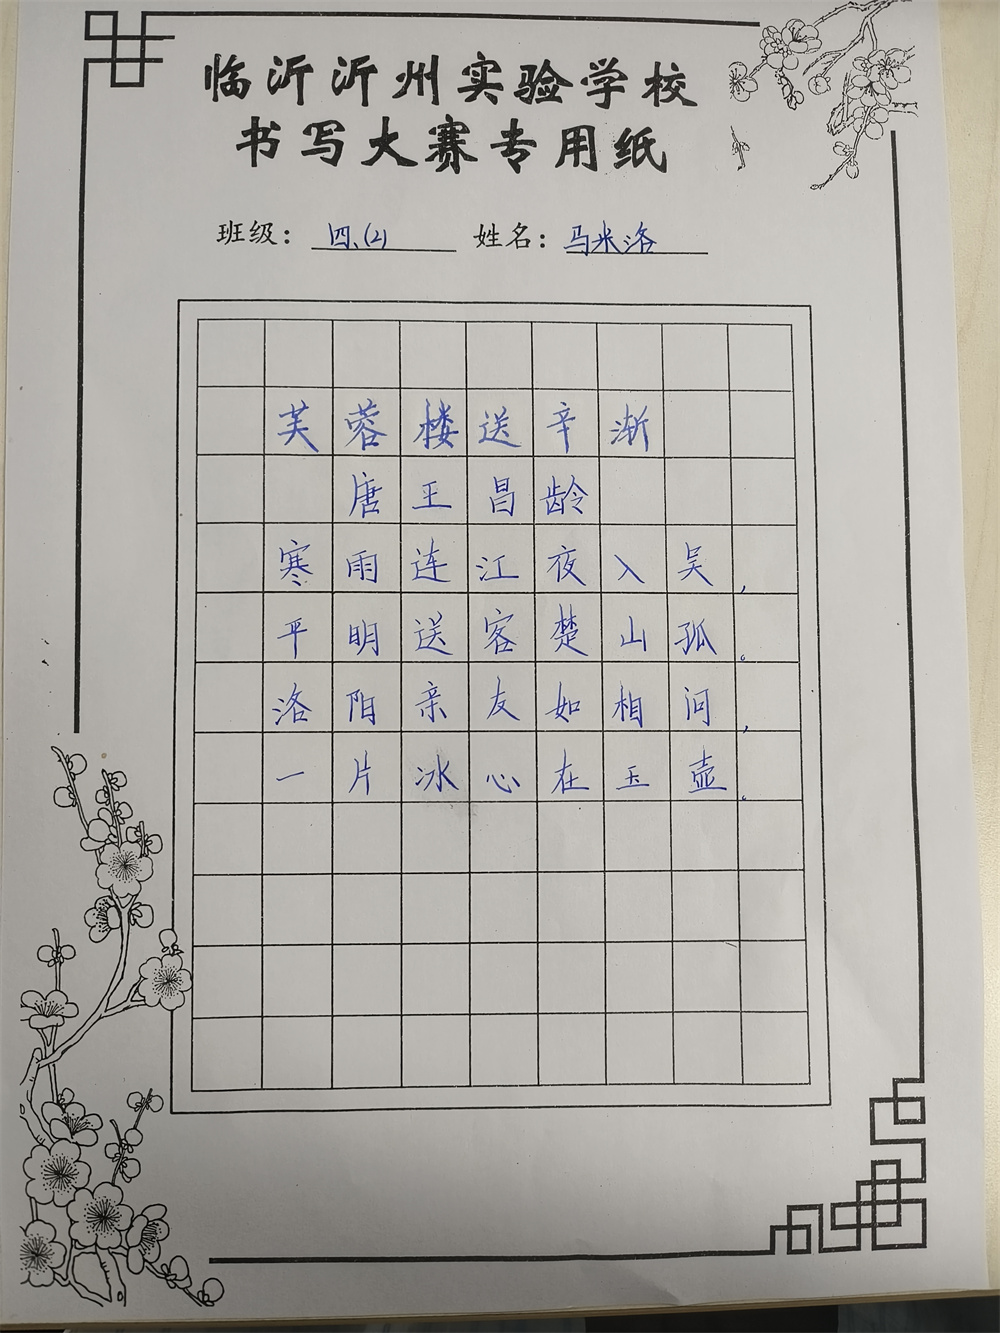 临沂沂州实验学校
书写大赛专用纸
班级：四、(2) 姓名：马米洛
芙蓉楼送辛渐
唐王昌龄
寒雨连江夜入吴，
平明送客楚山孤。
洛阳亲友如相问，
一片冰心在玉壶。